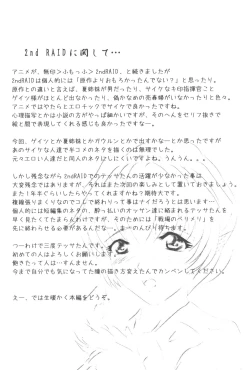 2nd RAIDに関して…
アニメが、無印＞ふもっふ＞2ndRAID、と続きましたが
2ndRAIDは個人的には「原作よりおもろかったんでない？」と思ったり。
原作との違いと言えば、夏姉妹が男だったり、サイケなネキ指揮官こと
ゲイツ様がほとんど出なかったり、偽かなめの売春婦がいなかったり色々。
アニメではやたらとエロチックでサイケで良かったですね。
心理描写とかは小説の方がやっぱ細かいですが、そのへんをセリフ抜きで
絵と間で表現してくれる感じも良かったですなー。
今回、ゲイツとか夏姉妹とかガウルンとかで出すかなーとか思ったですが
あのサイケな人達でキモコメのネタを描くのは無理でした。
元々エロい人達だと同人のネタにはしにくいですよね。うんうん。。。
しかし残念ながら2ndRAIDでのテッサたんの活躍が少なかった事は
大変残念ではありますが、それはまた次回の楽しみとして置いておきましょう。
また1年半ぐらいしたらやってくれますかね？期待大です。
個人的には短編集のネタの、酔っ払いのオッサン達に絡まれるテッサたんを
是非とも見てみたいわけですが、そのためには「戦場のベリメリ」を
先に終わらせる必要があるんだなー。まーのんびり待ちます。
つーわけで三度テッサたんです。
初めての人はよろしくお願いします。
飽きたって人は…すんません。
今まで自分でも気になってた様の描き方変えたんでカンベンしてください。
えー、では生暖かく本編をどうぞ。